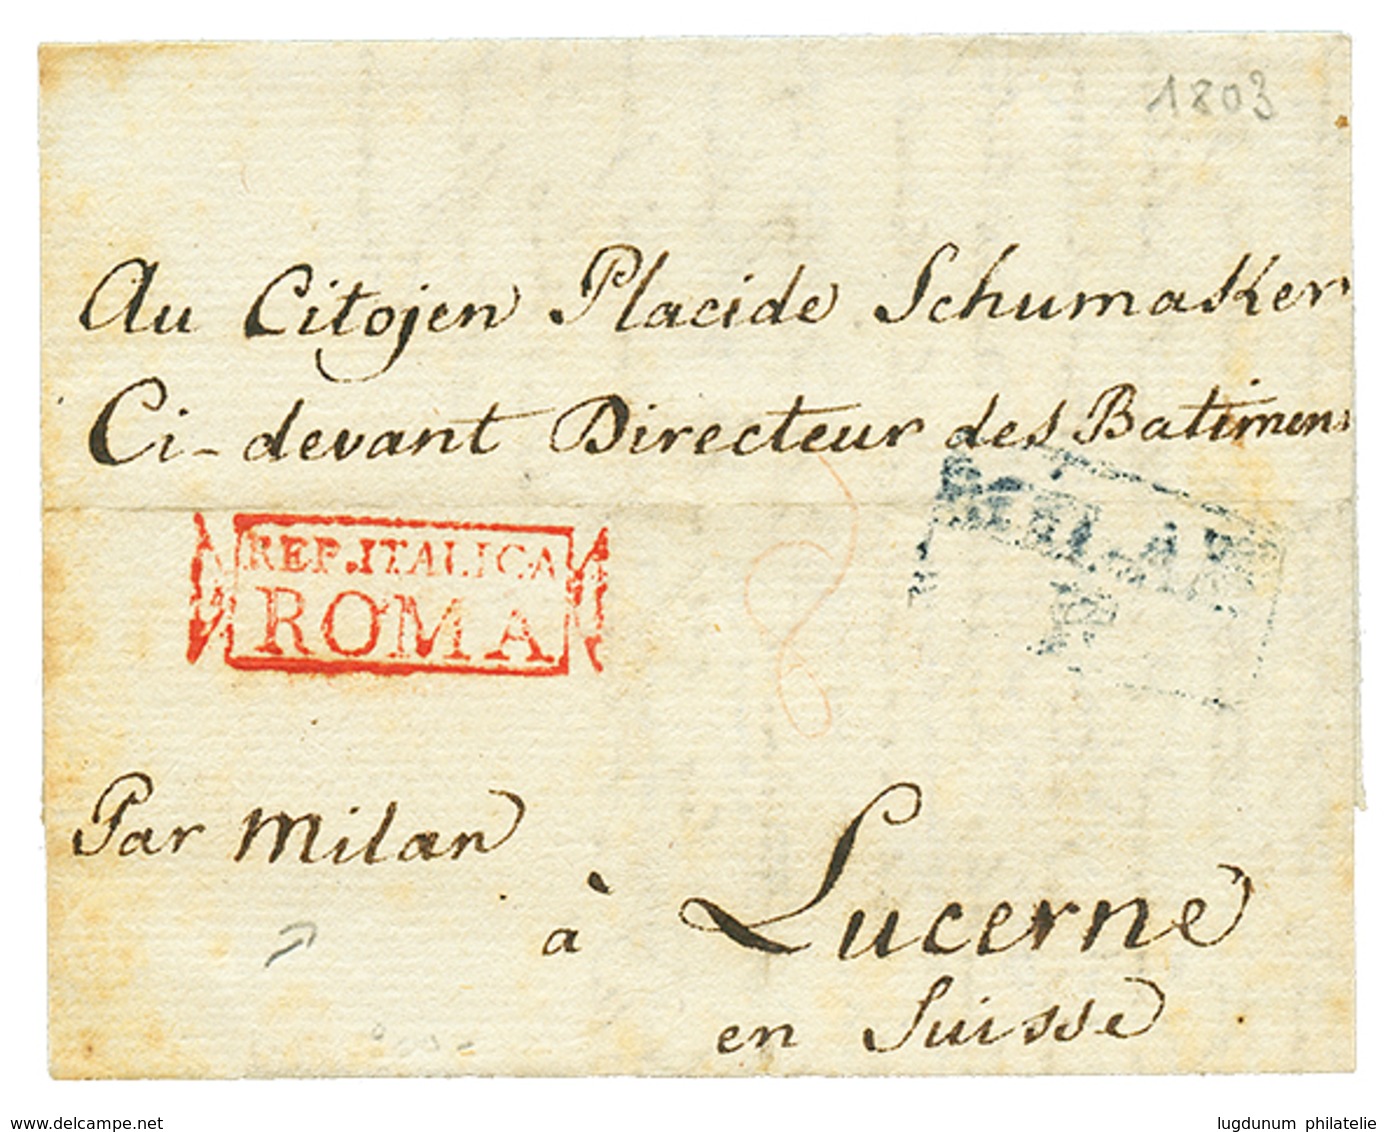 1803
Au Citojen Placide Schumaker
Ci-devant Directeur des Batimens
REP.ITALICA
ROMA
Par Milan
à Lucerne
en Suisse
www.delcampe.net
lugdunum philatelie